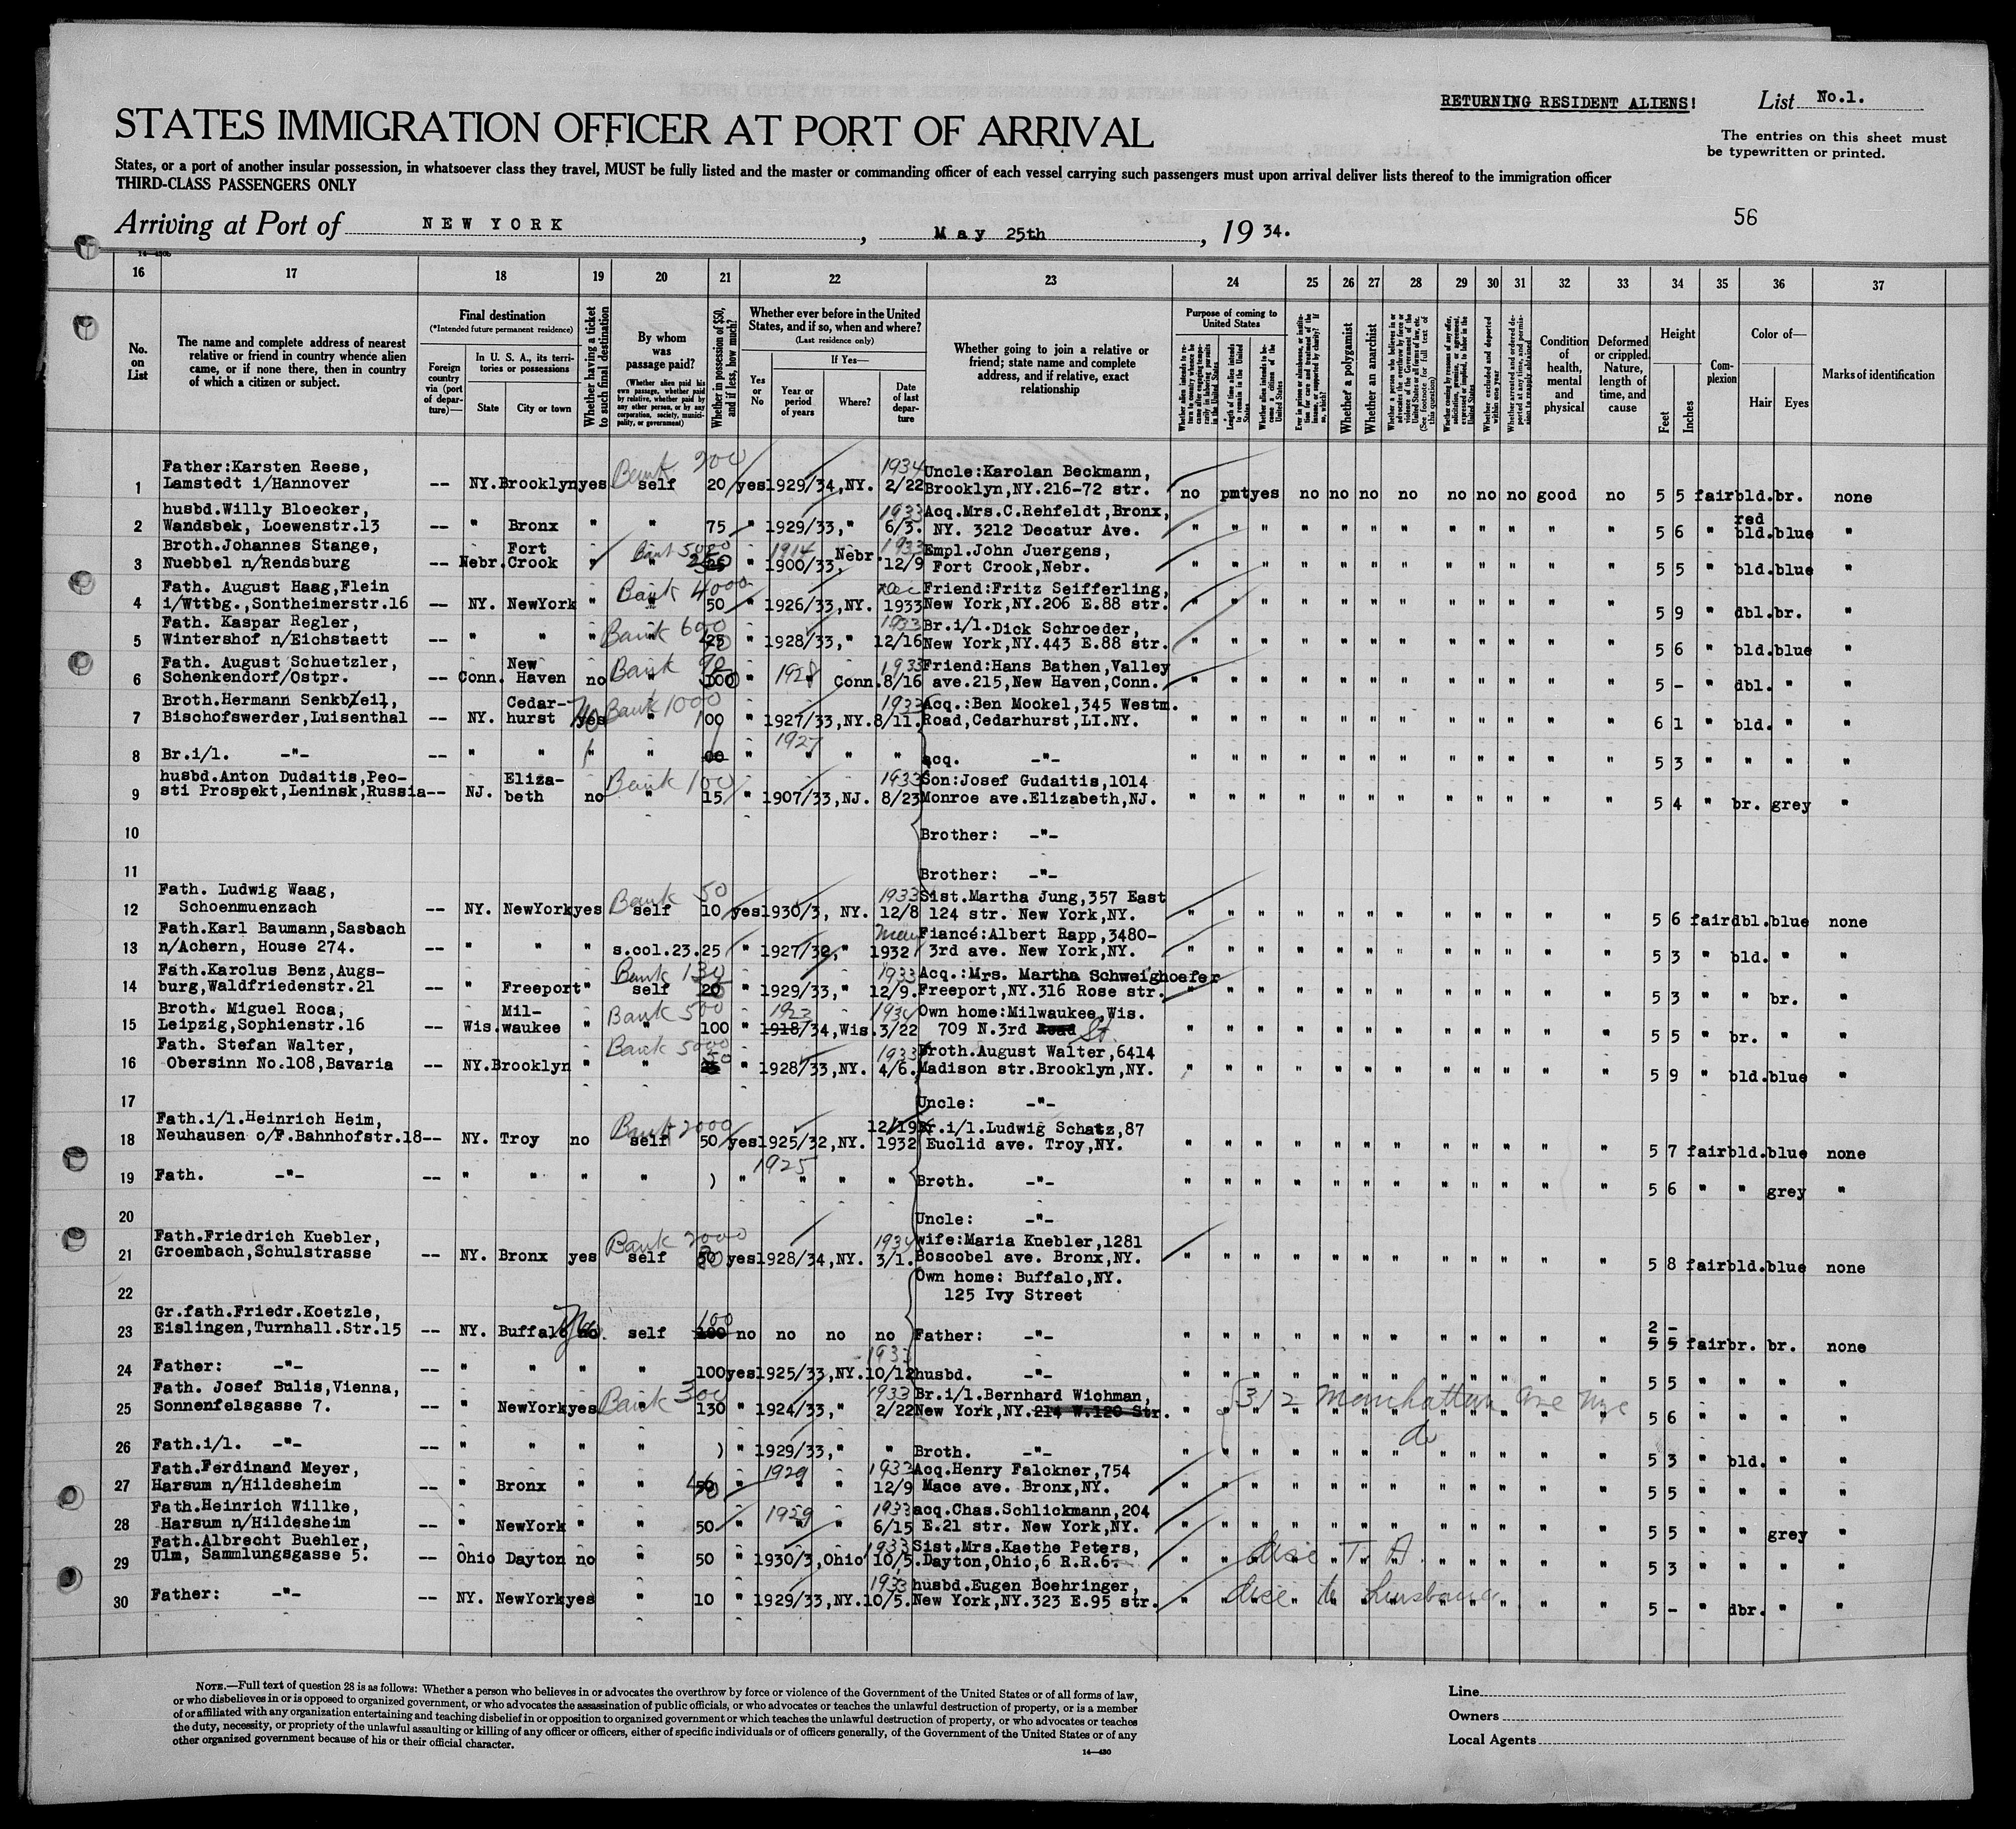 RETURNING RESIDENT ALIENS!
List No.1.
STATES IMMIGRATION OFFICER AT PORT OF ARRIVAL
The entries on this sheet must
be typewritten or printed.
States, or a port of another insular possession, in whatsoever class they travel, MUST be fully listed and the master or commanding officer of each vessel carrying such passengers must upon arrival deliver lists thereof to the immigration officer
THIRD-CLASS PASSENGERS ONLY
Arriving at Port of NEW YORK , May 25th , 19 34.
56
16 17 18 19 20 21 22 23 24 25 26 27 28 29 30 31 32 33 34 35 36 37
No. on List
The name and complete address of nearest relative or friend in country whence alien came, or if none there, then in country of which a citizen or subject.
Final destination
(*Intended future permanent residence)
Foreign country via (port of departure)—
In U. S. A., its territories or possessions
State City or town
Whether having a ticket to such final destination
By whom was passage paid?
(Whether alien paid his own passage, whether paid by relative, whether paid by any other person, or by any corporation, society, municipality, or government)
Whether in possession of $50, and if less, how much?
Whether ever before in the United States, and if so, when and where?
(Last residence only)
Yes or No
If Yes—
Year or period of years Where? Date of last departure
Whether going to join a relative or friend; state name and complete address, and if relative, exact relationship
Purpose of coming to United States
Whether a polygamist
Whether an anarchist
Condition of health, mental and physical
Deformed or crippled. Nature, length of time, and cause
Height
Feet Inches
Complexion
Color of—
Hair Eyes
Marks of identification
Father:Karsten Reese, Bank 200 1934 Uncle:Karolan Beckmann,
1 Lamstedt i/Hannover -- NY. Brooklyn yes self 20 yes 1929/34,NY. 2/22 Brooklyn,NY.216-72 str. no pmt yes no no no no no no no good no 5 5 fair bld. br. none
husbd.Willy Bloecker, 1933 Acq.Mrs.C.Rehfeldt,Bronx,
2 Wandsbek, Loewenstr.13 -- " Bronx " " 75 " 1929/33," 6/3. NY. 3212 Decatur Ave. 5 6 " red bld. blue "
Broth.Johannes Stange, Fort Bank 5000 1914 Nebr. 1933 Empl.John Juergens,
3 Nuebbel n/Rendsburg -- Nebr. Crook " " 1900/33, 12/9 Fort Crook,Nebr. 5 5 " bld. blue "
Fath. August Haag,Flein Bank 4000 Dec Friend:Fritz Seifferling,
4 i/Wttbg.,Sontheimerstr.16 -- NY. NewYork " " 50 " 1926/33,NY. 1933 New York,NY.206 E.88 str. 5 9 " dbl. br. "
Fath. Kaspar Regler, Bank 600 1933 Br.i/l.Dick Schroeder,
5 Wintershof n/Eichstaett -- " " " " 25 " 1928/33," 12/16 New York,NY.443 E.88 str. 5 6 " bld. blue "
Fath. August Schuetzler, New Bank 1933 Friend:Hans Bathen,Valley
6 Schenkendorf/Ostpr. -- Conn. Haven no " 100 " 1928 Conn. 8/16 ave.215,New Haven,Conn. 5 - " dbl. " "
Broth.Hermann Senkbeil, Cedar- Bank 1000 1933 Acq.:Ben Mockel,345 Westm.
7 Bischofswerder,Luisenthal -- NY. hurst yes No " 100 " 1927/33,NY. 8/11. Road,Cedarhurst,LI.NY. 6 1 " bld. " "
1927
8 Br.i/l. -"- -- " " " " 00 " " " " acq. -"- 5 3 " " " "
husbd.Anton Dudaitis,Peo- Eliza- Bank 100 1933 Son:Josef Gudaitis,1014
9 sti Prospekt,Leninsk,Russia -- NJ. beth no " 15 " 1907/33,NJ. 8/23 Monroe ave.Elizabeth,NJ. 5 4 " br. grey "
10 Brother: -"-
11 Brother: -"-
Fath. Ludwig Waag, Bank 50 1933 Sist.Martha Jung,357 East
12 Schoenmuenzach -- NY. NewYork yes self 10 yes 1930/3, NY. 12/8 124 str. New York,NY. 5 6 fair dbl. blue none
Fath.Karl Baumann,Sasbach Fiancé:Albert Rapp,3480-
13 n/Achern, House 274. -- " " " s.col.23.25 " 1927/32," 1932 3rd ave. New York,NY. 5 3 " bld. " "
Fath.Karolus Benz,Augs- Bank 130 1933 Acq.:Mrs. Martha Schweighoefer
14 burg,Waldfriedenstr.21 -- " Freeport " self 20 " 1929/33," 12/9. Freeport,NY.316 Rose str. 5 3 " " br. "
Broth. Miguel Roca, Mil- Bank 500 1923 1934 Own home:Milwaukee,Wis.
15 Leipzig,Sophienstr.16 -- Wis. waukee " " 100 " 1918/34,Wis. 3/22 709 N.3rd Road St. 5 5 " br. " "
Fath. Stefan Walter, Bank 5000 1933 Broth.August Walter,6414
16 Obersinn No.108,Bavaria -- NY. Brooklyn " " 50 " 1928/33,NY. 4/6. Madison str.Brooklyn,NY. 5 9 " bld. blue "
17 Uncle: -"-
Fath.i/l.Heinrich Heim, Bank 2000 Br.i/l.Ludwig Schatz,87
18 Neuhausen o/F.Bahnhofstr.18 -- NY. Troy no self 50 yes 1925/32,NY. 1932 Euclid ave. Troy,NY. 5 7 fair bld. blue none
1925
19 Fath. -"- -- " " " " ) " " " " Broth. -"- 5 6 " " grey "
20 Uncle: -"-
Fath.Friedrich Kuebler, Bank 2000 1934 wife:Maria Kuebler,1281
21 Groembach,Schulstrasse -- NY. Bronx yes self 50 yes 1928/34,NY. 3/1. Boscobel ave. Bronx,NY. 5 8 fair bld. blue none
Own home: Buffalo,NY.
22 125 Ivy Street
Gr.fath.Friedr.Koetzle, 100
23 Eislingen,Turnhall.Str.15 -- NY. Buffalo no. self 100 no no no no Father: -"- 2 - 5 5 fair br. br. none
1933
24 Father: -"- -- " " " " 100 yes 1925/33,NY. 10/12 husbd. -"- 5 5 " " " "
Fath. Josef Bulis,Vienna, Bank 300 1933 Br.i/l.Bernhard Wichman, 312 Manhattan Ave NYC
25 Sonnenfelsgasse 7. -- " NewYork yes " 130 " 1924/33," 2/22 New York,NY.214 W.120 Str. 5 6 " " " "
26 Fath.i/l. -"- -- " " " " ) " 1929/33," " Broth. -"- do 5 3 " bld. " "
Fath.Ferdinand Meyer, 1929 1933 Acq.Henry Falckner,754
27 Harsum n/Hildesheim -- " Bronx " " 50 " " " 12/9 Mace ave. Bronx,NY. 5 5 " " " "
Fath.Heinrich Willke, 1929 1933 acq.Chas.Schlickmann,204
28 Harsum n/Hildesheim -- " NewYork " " 50 " " " 6/15 E.21 str. New York,NY. 5 5 " " grey "
Fath.Albrecht Buehler, 1933 Sist.Mrs.Kaethe Peters,
29 Ulm, Sammlungsgasse 5. -- Ohio Dayton no " 50 " 1930/3,Ohio 10/5. Dayton,Ohio,6 R.R.6. disc T. A. 5 3 " " " "
1933 husbd.Eugen Boehringer,
30 Father: -"- -- NY. NewYork yes " 10 " 1929/33,NY. 10/5. New York,NY.323 E.95 str. disc to 5 - " dbr. " "
NOTE.—Full text of question 28 is as follows: Whether a person who believes in or advocates the overthrow by force or violence of the Government of the United States or of all forms of law,
or who disbelieves in or is opposed to organized government, or who advocates the assassination of public officials, or who advocates or teaches the unlawful destruction of property, or is a member
of or affiliated with any organization entertaining and teaching disbelief in or opposition to organized government or which teaches the unlawful destruction of property, or who advocates or teaches
the duty, necessity, or propriety of the unlawful assaulting or killing of any officer or officers, either of specific individuals or of officers generally, of the Government of the United States or of any
other organized government because of his or their official character.
14—430
Line
Owners
Local Agents